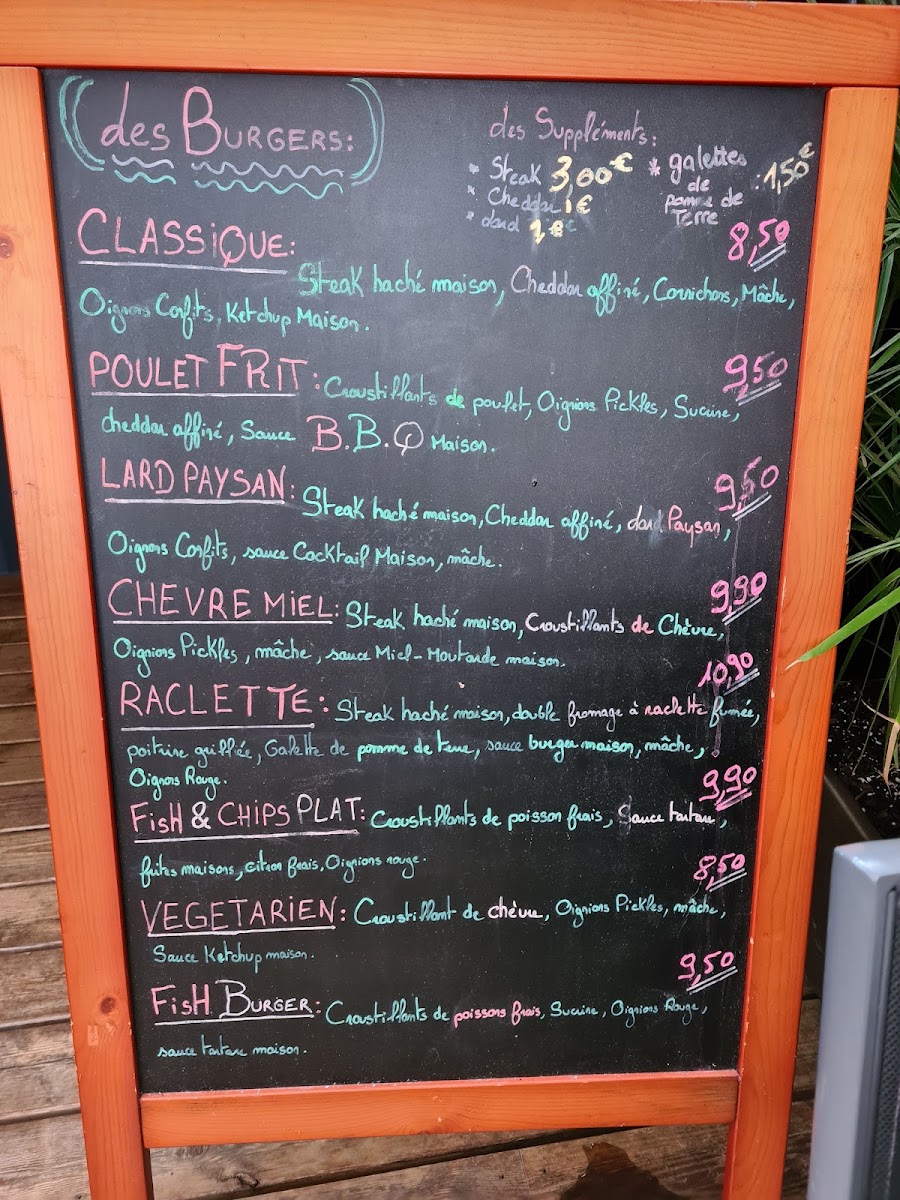 des BURGERS:
des Suppléments:
* Steak 3,00€
* Cheddar 1€
* dard
* galettes de pomme de Terre : 1,50€
CLASSiQUE: 8,50
Steak haché maison, Cheddar affiné, Cornichons, Mâche,
Oignons Confits, Ketchup Maison.
POULET FRIT: 9,50
Croustillants de poulet, Oignions Pickles, Sucrine,
cheddar affiné, Sauce B.B.Q Maison.
LARD PAYSAN: 9,50
Steak haché maison, Cheddar affiné, dard Paysan,
Oignons Confits, sauce Cocktail Maison, mâche.
CHEVRE MiEL: 9,90
Steak haché maison, Croustillants de Chèvre,
Oignions Pickles, mâche, sauce Miel-Moutarde maison.
RACLETTE: 10,90
Steak haché maison, double fromage à raclette fumée,
poitrine grillée, Galette de pomme de terre, sauce burger maison, mâche,
Oignons Rouge.
FisH & CHiPS PLAT: 9,90
Croustillants de poisson frais, Sauce tartare,
frites maisons, citron frais, Oignions rouge.
VEGETARIEN: 8,50
Croustillant de chèvre, Oignions Pickles, mâche,
Sauce Ketchup maison.
FisH BURGER: 9,50
Croustillants de poissons frais, Sucrine, Oignions Rouge,
sauce tartare maison.